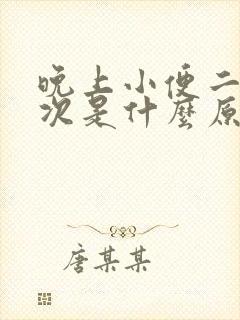 晚上小便二
次是什麼原
唐某某